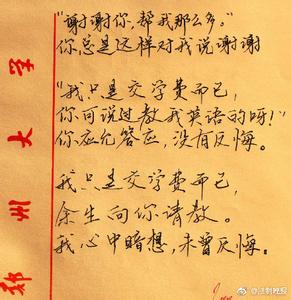 “谢谢你,帮我那么多。”
你总是这样对我说谢谢
“我只是交学费而已,
你可说过教我英语的呀!”
你应允答应,没有反悔。
我只是交学费而已,
余生向你请教。
我心中暗想,未曾反悔。
郑州大学
@法制晚报